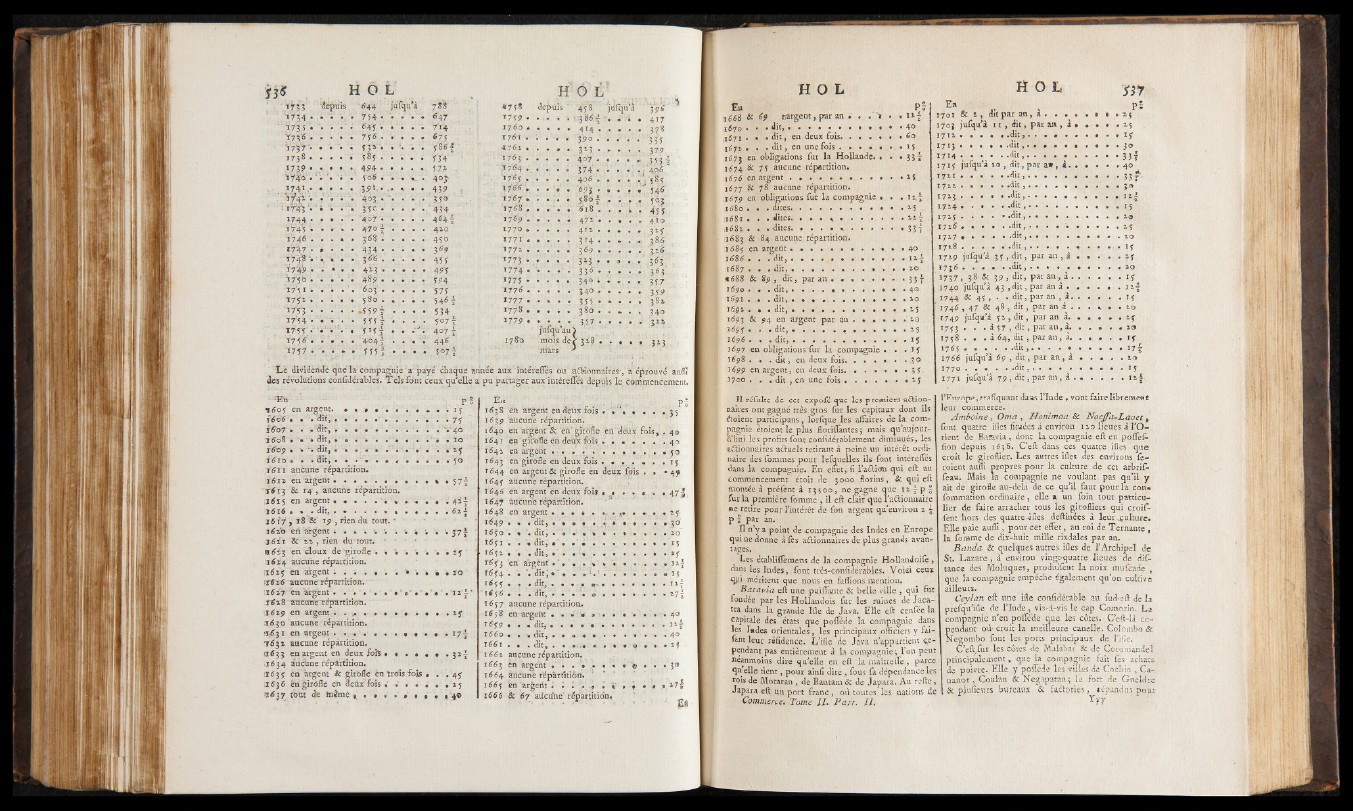 536 HOL HOL
1733 depuis 644 jusqu'à 788
1734 . . . . . 754 . . . . . 647
1735 . . . . . 645 . . . . . 714
1736 . . . . . 756 . . . . . 675
1737 . . . . . 532 . . . . . 586 ½
1738 . . . . . 585 . . . . . 534
1739 . . . . . 494 . . . . . 572
1740 . . . . . 506 . . . . . 403
1741 . . . . . 391 . . . . . 439
1742 . . . . . 403 . . . . . 350
1743 . . . . . 350 . . . . . 434
1744 . . . . . 407 . . . . . 464 ½
1745 . . . . . 470 ½ . . . . . 420
1746 . . . . . 368 . . . . . 450
1747 . . . . . 434 . . . . . 369
1748 . . . . . 366 . . . . . 455
1749 . . . . . 423 . . . . . 495
1750 . . . . . 489 . . . . . 594
1751 . . . . . 603 . . . . . 575
1752 . . . . . 580 . . . . . 546 ½
1753 . . . . . 559 ½ . . . . . 534
1754 . . . . . 555 ½ . . . . . 507 ½
1755 . . . . . 515 ½ . . . . . 407 ½
1756 . . . . . 404 ½ . . . . . 446
1757 . . . . . 555 ½ . . . . . 507 ½
1758 depuis 458 jusqu'à 396
1759 . . . . . 386 ½ . . . . . 417
1760 . . . . . 414 . . . . . 378
1761 . . . . . 390 . . . . . 335
1762 . . . . . 323 . . . . . 379
1763 . . . . . 407 . . . . . 353 ½
1764 . . . . . 374 . . . . . 406
1765 . . . . . 406 . . . . . 585
1766 . . . . . 693 . . . . . 546
1767 . . . . . 580 ½ . . . . . 503
1768 . . . . . 618 . . . . . 455
1769 . . . . . 472 . . . . . 410
1770 . . . . . 412 . . . . . 325
1771 . . . . . 314 . . . . . 386
1772 . . . . . 369 . . . . . 326
1773 . . . . . 323 . . . . . 363
1774 . . . . . 336 . . . . . 363
1775 . . . . . 340 . . . . . 357
1776 . . . . . 340 . . . . . 359
1777 . . . . . 355 . . . . . 382
1778 . . . . . 380 . . . . . 340
1779 . . . . . 357 . . . . . 312
jusqu'au
1780 mois de 328 . . . . . 323
mars
Le dividende que la compagnie a payé chaque année aux intéressés ou actionnaires, a éprouvé aussi
des révolutions considérables. Tels sont ceux qu'elle a pu partager aux intéressés depuis le commencement.
En p °/o
1605 en argent. . . . . . 15
1606 . . . dit, . . . . . . 75
1607 . . . dit, . . . . . . 40
1608 . . . dit, . . . . . . 20
1609 . . . dit, . . . . . . 25
1610 . . . dit, . . . . . . 50
1611 aucune répartition.
1612 en argent . . . . . . 57 ½
1613 & 14, aucune répartition.
1615 en argent . . . . . . 42 ½
1616 . . . dit, . . . . . . 62 ½
1617, 18 & 19, rien du tout.
1620 en argent . . . . . . 37 ½
1621 & 22, rien du tout.
1623 en cloux de girofle . . . . . . 25
1624 aucune répartition.
1625 en argent . . . . . . 20
1626 aucune répartition.
1627 en argent . . . . . . 12 ½
1628 aucune répartition.
1629 en argent . . . . . . 25
1630 aucune répartition.
1631 en argent . . . . . . 17 ½
1632 aucune répartition.
1633 en argent en deux fois . . . . . . 32 ½
1634 aucune répartition.
1635 en argent & girofle en trois fois . . . 45
1636 en girofle en deux fois . . . . . . 25
1637 tout de même . . . . . . 40
En p °/o
1638 en argent en deux fois . . . . . . 35
1639 aucune répartition.
1640 en argent & en girofle en deux fois, . 40
1641 en girofle en deux fois . . . . . . 40
1642 en argent . . . . . . 50
1643 en girofle en deux fois . . . . . . 15
1644 en argent & girofle en deux fois . . . 45
1645 aucune répartition.
1646 en argent en deux fois . . . . . . 47 ½
1647 aucune répartition.
1648 en argent . . . . . . 25
1649 . . . dit, . . . . . . 30
1650 . . . dit, . . . . . . 20
1651 . . . dit, . . . . . . 15
1652 . . . dit, . . . . . . 25
1653 en argent . . . . . . 12 ½
1654 . . . dit, . . . . . . 15
1655 . . . dit, . . . . . . 12 ½
1656 . . . dit, . . . . . . 27 ½
1657 aucune répartition.
1658 en argent . . . . . . 40
1659 . . . dit, . . . . . . 12 ½
1660 . . . dit, . . . . . . 40
1661 . . . dit, . . . . . . 25
1662 aucune répartition.
1663 en argent . . . . . . 30
1664 aucune répartition.
1665 en argent . . . . . . 27 ½
1666 & 67 aucune répartition.
En
HOL HOL 537
En p °/o
1668 & 69 en argent, par an . . . . . 12 ½
1670 . . . dit, . . . . . . 40
1671 . . . dit, en deux fois. . . . . . 60
1672 . . . dit, en une fois . . . . . . 15
1673 en obligations sur la Hollande. . . . 33 ½
1674 & 75 aucune répartition.
1676 en argent . . . . . . 25
1677 & 78 aucune répartition.
1679 en obligations sur la compagnie . . . 12 ½
1680 . . . dites. . . . . . 25
1681 . . . dites. . . . . . 22 ½
1682 . . . dites. . . . . . 33 ⅓
1683 & 84 aucune répartition.
1685 en argent . . . . . . 40
1686 . . . dit, . . . . . . 12 ½
1687 . . . dit, . . . . . . 20
1688 & 89, dit, par an . . . . . . 33 ⅓
1690 . . . dit, . . . . . . 40
1691 . . . dit, . . . . . . 20
1692 . . . dit, . . . . . . 25
1693 & 94 en argent par an . . . . . . 20
1695 . . . dit, . . . . . . 25
1696 . . . dit, . . . . . . 15
1697 en obligations sur la compagnie . . . 15
1698 . . . dit, en deux fois. . . . . . 30
1699 en argent, en deux fois. . . . . . 35
1700 . . . dit, en une fois . . . . . . 25
Il résulte de cet exposé que les premiers action-
naires ont gagné très gros sur les capitaux dont ils
étoient participans, lorsque les affaires de la com-
pagnie étoient le plus florissantes; mais qu'aujour-
d'hui les profits sont considérablement diminués, les
actionnaires actuels retirant à peine un intérêt ordi-
naire des sommes pour lesquelles ils sont intéressés
dans la compagnie. En effet, si l'action qui est au
commencement étoit de 3000 florins, & qui est
montée à présent à 13500, ne gagne que 12 ½ p °/o
sur la première somme, il est clair que l'actionnaire
ne retire pour l'intérêt de son argent qu'environ 2 ¾
p °/o par an.
Il n'y a point de compagnie des Indes en Europe
qui ne donne à ses actionnaires de plus grands avan-
tages.
Les établissemens de la compagnie Hollandoise,
dans les Indes, sont très-considérables. Voici ceux
qui méritent que nous en fassions mention.
Batavia est une puissante & belle ville, qui fut
fondée par les Hollandois sur les ruines de Jaca-
tra dans la grande Isle de Java. Elle est censée la
capitale des états que possède la compagnie dans
les Indes orientales, les principaux officiers y fai-
sant leur résidence. L'isle de Java n'appartient ce-
pendant pas entièrement à la compagnie; l'on peut
néanmoins dire qu'elle en est la maîtresse, parce
qu'elle tient, pour ainsi dire, sous sa dépendance les
rois de Mataran, de Bantam & de Japara. Au reste,
Japara est un port franc, où toutes les nations de
Commerce. Tome II. Part. II.
En p °/o
1701 & 2, dit par an, à . . . . . . 25
1703 jusqu'à 11, dit, par an, à . . . . . . 25
1712 . . . . . . dit, . . . . . . 15
1713 . . . . . . dit, . . . . . . 30
1714 . . . . . . dit, . . . . . . 33 ⅓
1715 jusqu'à 20, dit, par an, à . . . . . . 40
1721 . . . . . . dit, . . . . . . 33 ⅓
1722 . . . . . . dit, . . . . . . 30
1723 . . . . . . dit, . . . . . . 12 ½
1724 . . . . . . dit, . . . . . . 15
1725 . . . . . . dit, . . . . . . 20
1726 . . . . . . dit, . . . . . . 25
1727 . . . . . . dit, . . . . . . 20
1728 . . . . . . dit, . . . . . . 15
1729 jusqu'à 35, dit, par an, à . . . . . . 25
1736 . . . . . . dit, . . . . . . 20
1737, 38 & 39, dit, par an, à . . . . . . 15
1740 jusqu'à 43, dit, par an à . . . . . . 12 ½
1744 & 45, . . dit, par an, à . . . . . . 15
1746, 47 & 48, dit, par an à . . . . . . 20
1749 jusqu'à 52, dit, par an à. . . . . . 25
1753 . . . à 57, dit, par an, à. . . . . . 20
1758 . . . à 64, dit, par an, à. . . . . . 15
1765 . . . . . . dit, . . . . . . 17 ½
1766 jusqu'à 69, dit, par an, à . . . . . . 20
1770 . . . . . . dit, . . . . . . 15
1771 jusqu'à 79, dit, par an, à . . . . . . 12 ½
l'Europe, trafiquant dans l'Inde, vont faire librement
leur commerce.
Amboine, Oma, Honimoa & Noessa-Laoet,
sont quatre isles situées à environ 120 lieues à l'O-
rient de Batavia, dont la compagnie est en posses-
sion depuis 1638. C'est dans ces quatre isles que
croît le giroflier. Les autres isles des environs se-
roient aussi propres pour la culture de cet arbris-
seau. Mais la compagnie ne voulant pas qu'il y
ait de girofle au-delà de ce qu'il faut pour sa con-
sommation ordinaire, elle a un soin tout particu-
lier de faire arracher tous les girofliers qui crois-
sent hors des quatre isles destinées à leur culture.
Elle paie aussi, pour cet effet, au roi de Ternante,
la somme de dix-huit mille rixdales par an.
Banda & quelques autres isles de l'Archipel de
St. Lazare, à environ vingt-quatre lieues de dis-
tance des Moluques, produisent la noix muscade,
que la compagnie empêche également qu'on cultive
ailleurs.
Ceylan est une isle considérable au sud-est de la
presqu'isle de l'Inde, vis-à-vis le cap Comorin. La
compagnie n'en possède que les côtes. C'est-là ce-
pendant où croît la meilleure canelle. Colombo &
Negombo sont les ports principaux de l'isle.
C'est sur les côtes de Malabar & de Coromandel
principalement, que la compagnie fait ses achats
de poivre. Elle y possède les villes de Cochin, Ca-
nanor, Coulan & Negapatan; le fort de Gueldre
& plusieurs bureaux & factories, répandus pour
Yyy